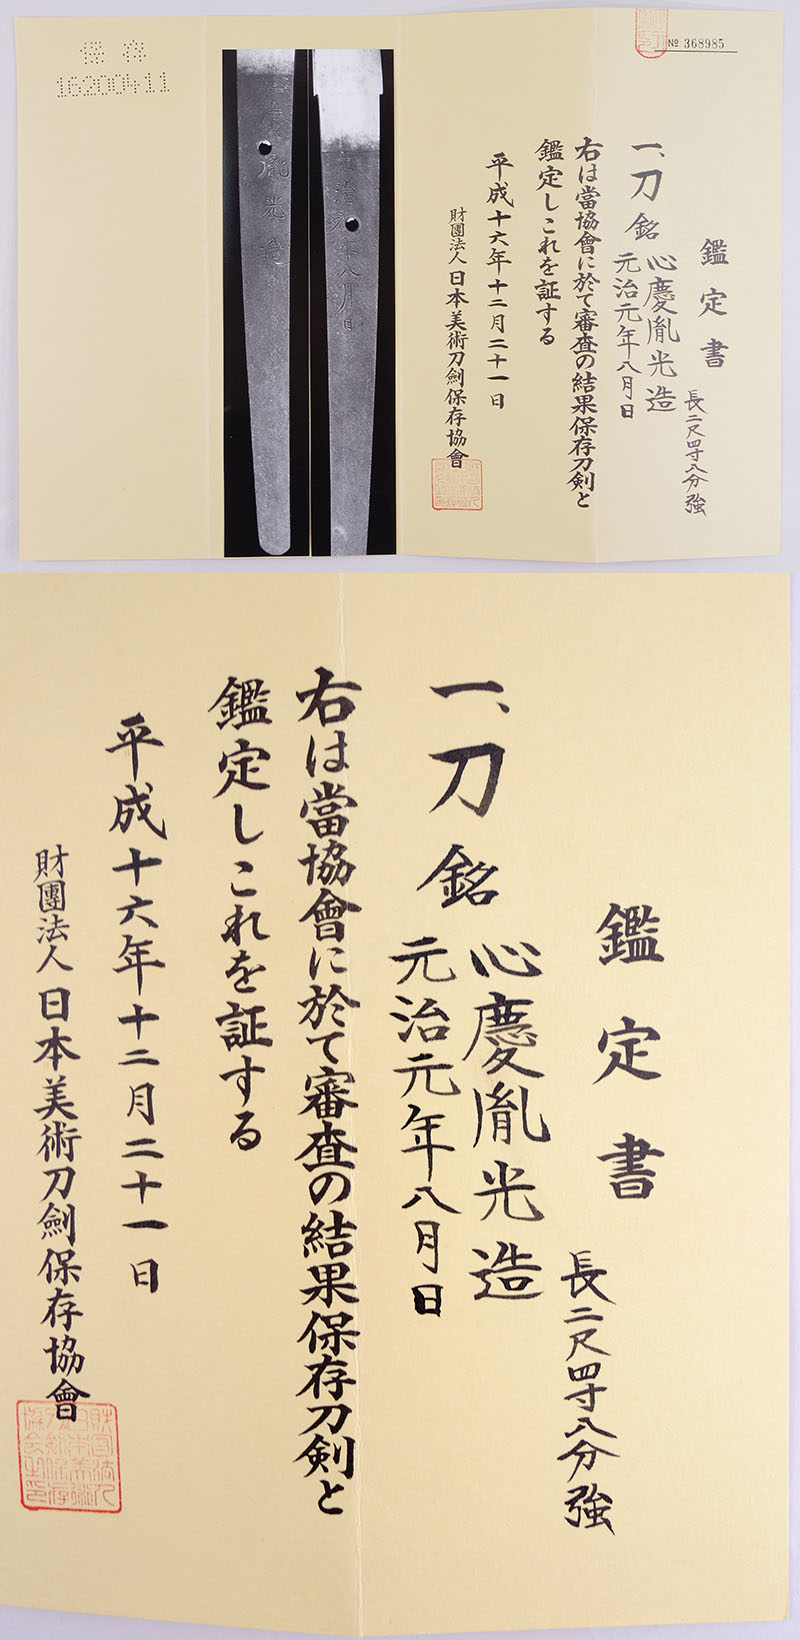 保存
16200411
№ 368985
鑑定書
長二尺四寸八分強
一、刀 銘 心慶胤光造
元治元年八月日
右は當協會に於て審査の結果保存刀剣と
鑑定しこれを証する
平成十六年十二月二十一日
財團法人日本美術刀劍保存協會
慶胤光造
元治元年八月日
鑑定書
長二尺四寸八分強
一、刀 銘 心慶胤光造
元治元年八月日
右は當協會に於て審査の結果保存刀剣と
鑑定しこれを証する
平成十六年十二月二十一日
財團法人日本美術刀劍保存協會